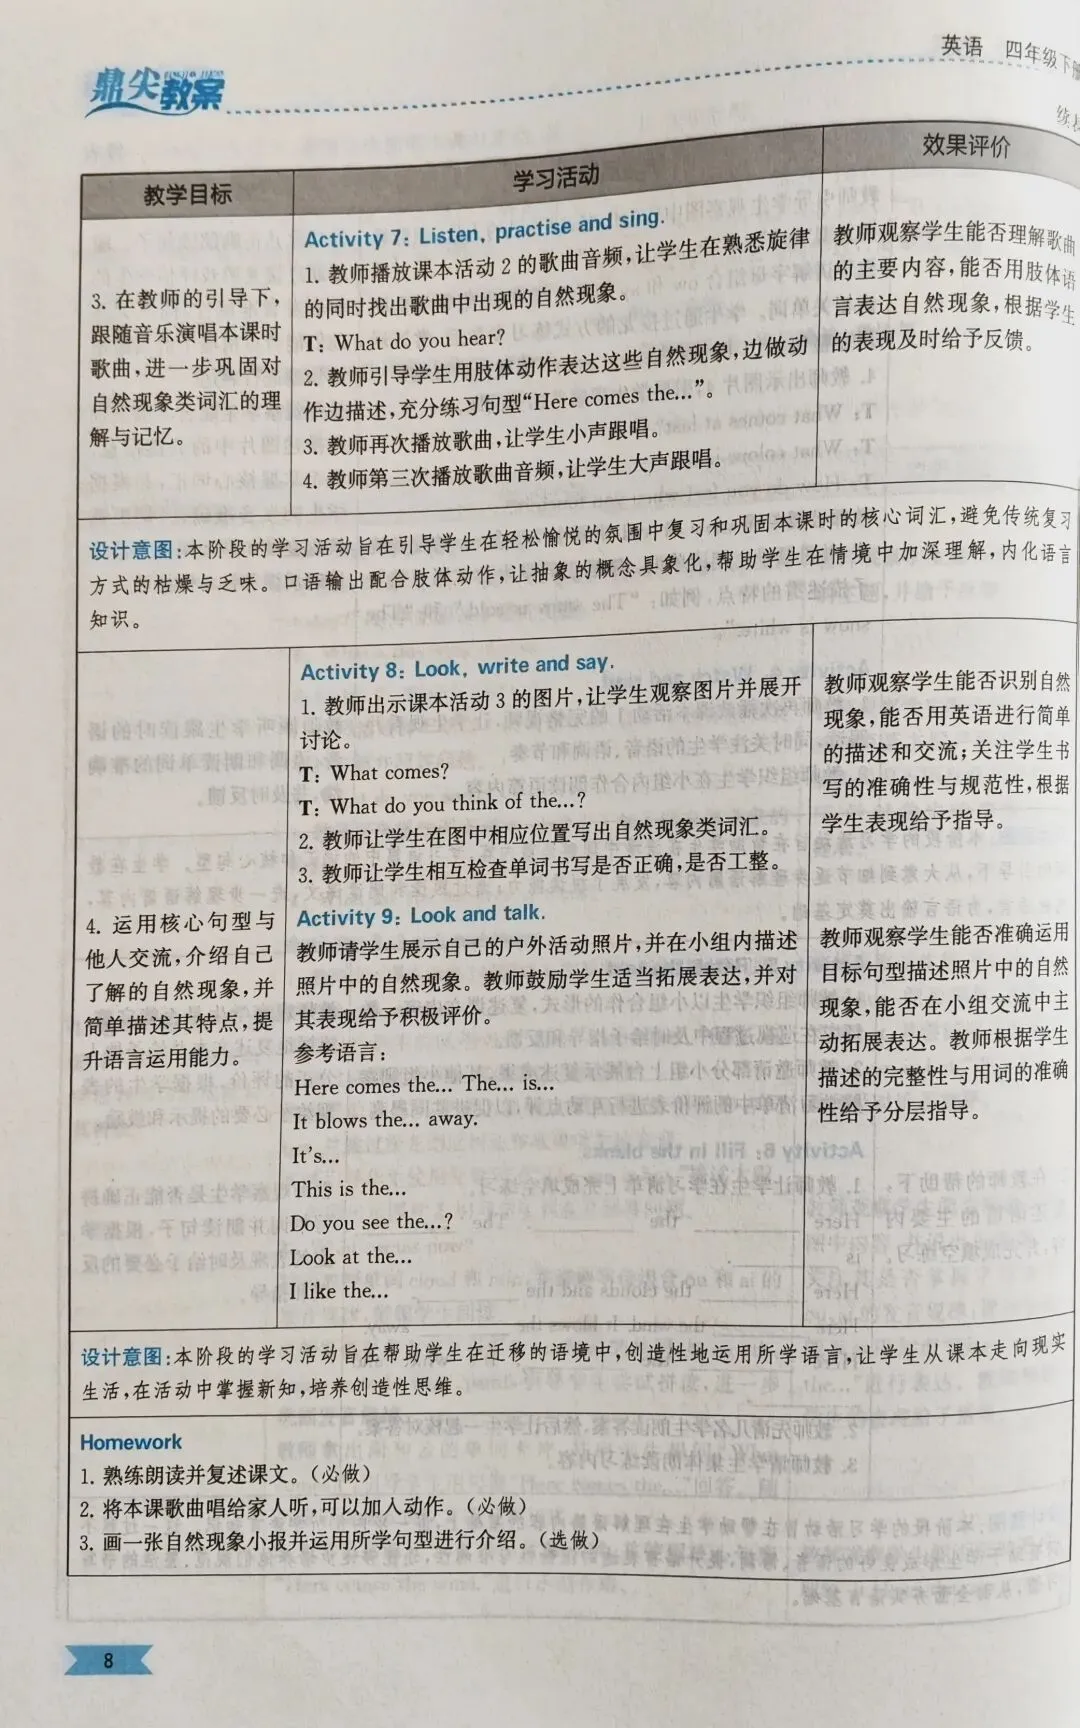 英语 四年级下册
鼎尖教案
教学目标
学习活动
效果评价
3. 在教师的引导下,
跟随音乐演唱本课时
歌曲,进一步巩固对
自然现象类词汇的理
解与记忆。
Activity 7: Listen, practise and sing.
1. 教师播放课本活动 2 的歌曲音频,让学生在熟悉旋律
的同时找出歌曲中出现的自然现象。
T: What do you hear?
2. 教师引导学生用肢体动作表达这些自然现象,边做动
作边描述,充分练习句型“Here comes the...”。
3. 教师再次播放歌曲,让学生小声跟唱。
4. 教师第三次播放歌曲音频,让学生大声跟唱。
教师观察学生能否理解歌曲
的主要内容,能否用肢体语
言表达自然现象,根据学生
的表现及时给予反馈。
设计意图:本阶段的学习活动旨在引导学生在轻松愉悦的氛围中复习和巩固本课时的核心词汇,避免传统复习
方式的枯燥与乏味。口语输出配合肢体动作,让抽象的概念具象化,帮助学生在情境中加深理解,内化语言
知识。
4. 运用核心句型与
他人交流,介绍自己
了解的自然现象,并
简单描述其特点,提
升语言运用能力。
Activity 8: Look, write and say.
1. 教师出示课本活动 3 的图片,让学生观察图片并展开
讨论。
T: What comes?
T: What do you think of the...?
2. 教师让学生在图中相应位置写出自然现象类词汇。
3. 教师让学生相互检查单词书写是否正确,是否工整。
教师观察学生能否识别自然
现象,能否用英语进行简单
的描述和交流;关注学生书
写的准确性与规范性,根据
学生表现给予指导。
Activity 9: Look and talk.
教师请学生展示自己的户外活动照片,并在小组内描述
照片中的自然现象。教师鼓励学生适当拓展表达,并对
其表现给予积极评价。
参考语言:
Here comes the... The... is...
It blows the... away.
It's...
This is the...
Do you see the...?
Look at the...
I like the...
教师观察学生能否准确运用
目标句型描述照片中的自然
现象,能否在小组交流中主
动拓展表达。教师根据学生
描述的完整性与用词的准确
性给予分层指导。
设计意图:本阶段的学习活动旨在帮助学生在迁移的语境中,创造性地运用所学语言,让学生从课本走向现实
生活,在活动中掌握新知,培养创造性思维。
Homework
1. 熟练朗读并复述课文。(必做)
2. 将本课歌曲唱给家人听,可以加入动作。(必做)
3. 画一张自然现象小报并运用所学句型进行介绍。(选做)
8